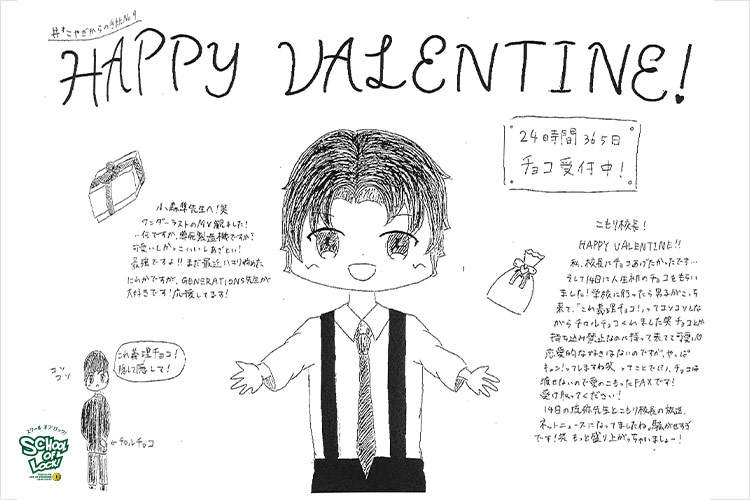 #すこやぎからの手紙No.9
HAPPY VALENTINE!
24時間365日
チョコ受付中!
小森隼先生へ!笑
ワンダーラストのMV観ました!
一体何ですか、悪死製造機ですか?
可愛いしかっこいいしあざとい
最強ですよ!!まだ最近ハマり始めた
にわかですが、GENERATIONS先生が
大好きです!応援してます!
こもり校長!
HAPPY VALENTINE!!
私、校長にチョコあげたかったです…
そして14日に人生初のチョコをもらい
ました!学校に行ったら男子がこっち
来て、「これ義理チョコ!」ってコソコソしな
がらチロルチョコくれました笑 チョコとか
持ち込み禁止なのに持って来てて可愛い♡
恋愛的な好きはないのですが、やっぱ
キュン!ってしますね笑 ってことでい!、チョコは
渡せないので愛のこもったFAXです!
受け取ってください!
14日の
先生とこもり校長の放送、
ネットニュースになってましたね。騒がせすぎ
です!笑 もっと盛り上がっちゃいましょー!
これ義理チョコ!
隠して隠して!
コソ
コソ
←チロルチョコ
スクール オブ ロック!
SCHOOL
OF
LOCK!